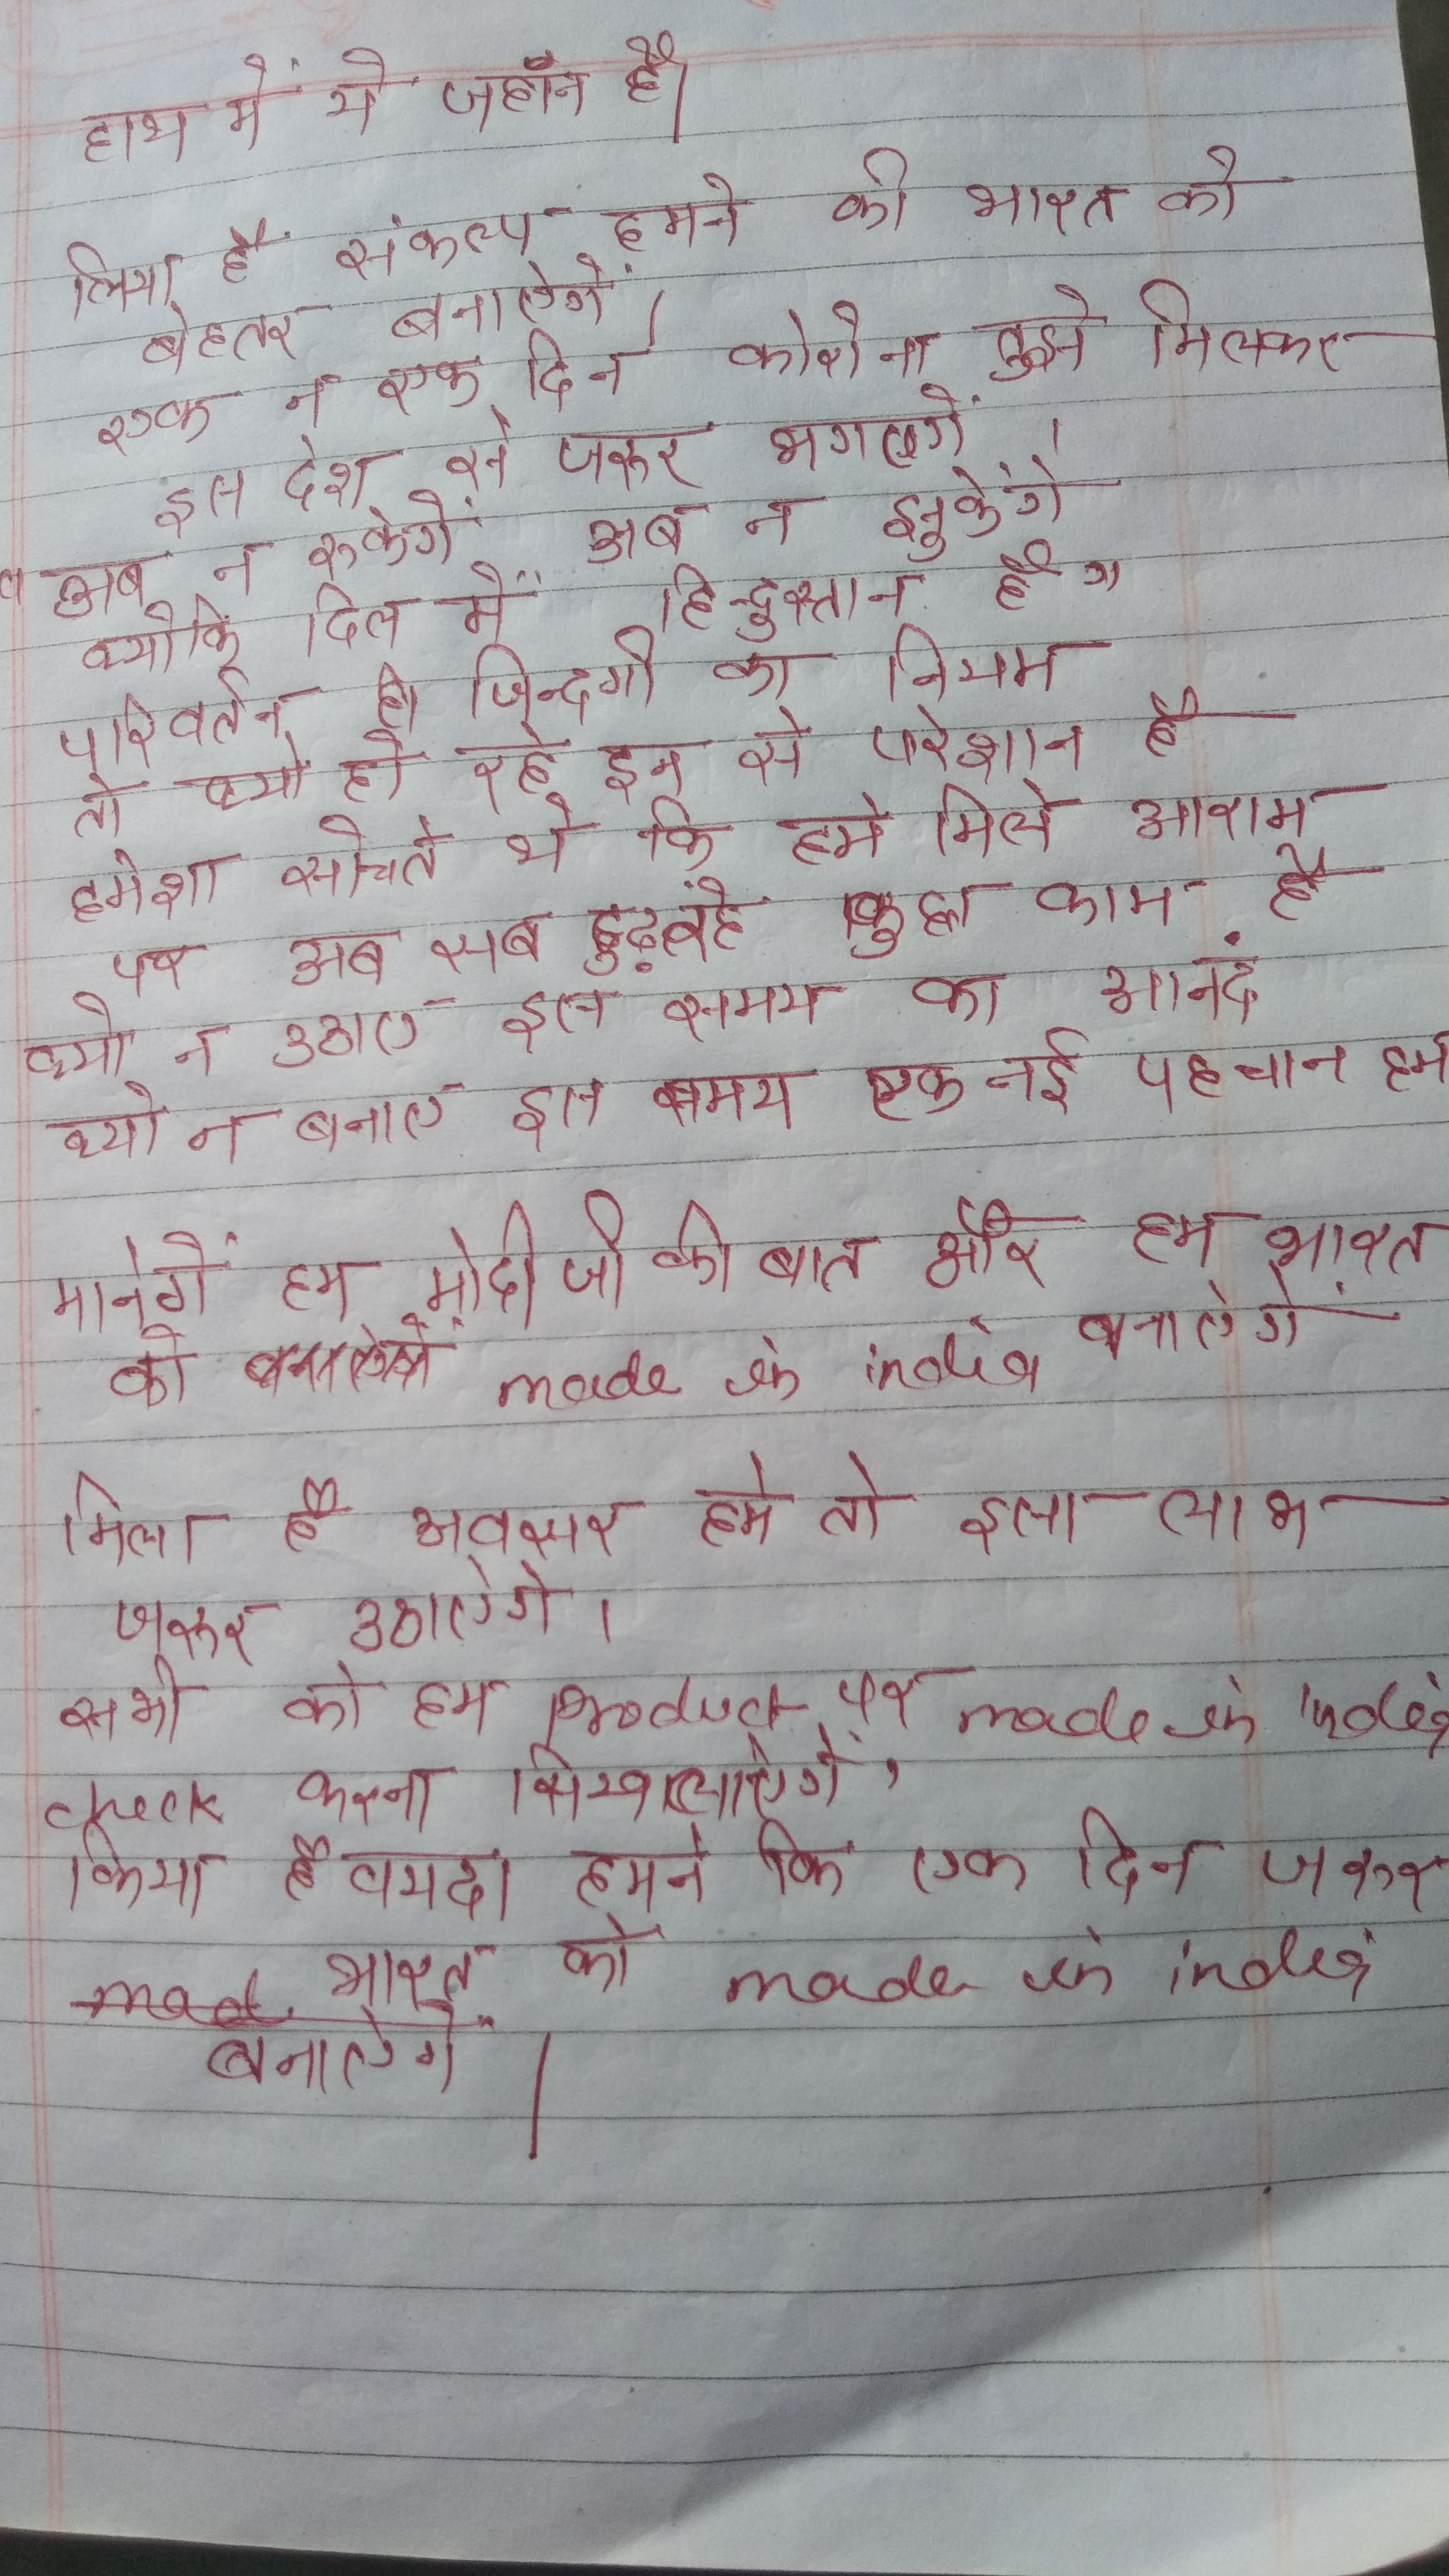 हाथ में ये जहाँन है।
लिया है संकल्प हमने की भारत को
बेहतर बनाऐगें।
एक न एक दिन कोरोना तुझे मिलकर
इस देश से जरूर भगाएगें।
अब न रुकेगें अब न झुकेंगे
क्योकि दिल में हिन्दुस्तान है"
परिवर्तन ही जिन्दगी का नियम
तो क्यो हो रहे इन से परेशान है
हमेशा सोचते थे कि हमे मिले आराम
पर अब सब काम है
क्यो न उठाए इस समय का आनंद
क्यो न बनाए इस समय एक नई पहचान हम
मानेगें हम मोदी जी की बात और हम भारत
को made in india बनाऐगें
मिला है अवसर हमे तो इसा लाभ
जरूर उठाऐगे।
सभी को हम product पर made in india
check करना सिखालाऐगें,
किया है वायदा हमने कि एक दिन जरूर
mad भारत को made in india
बनाऐगें।